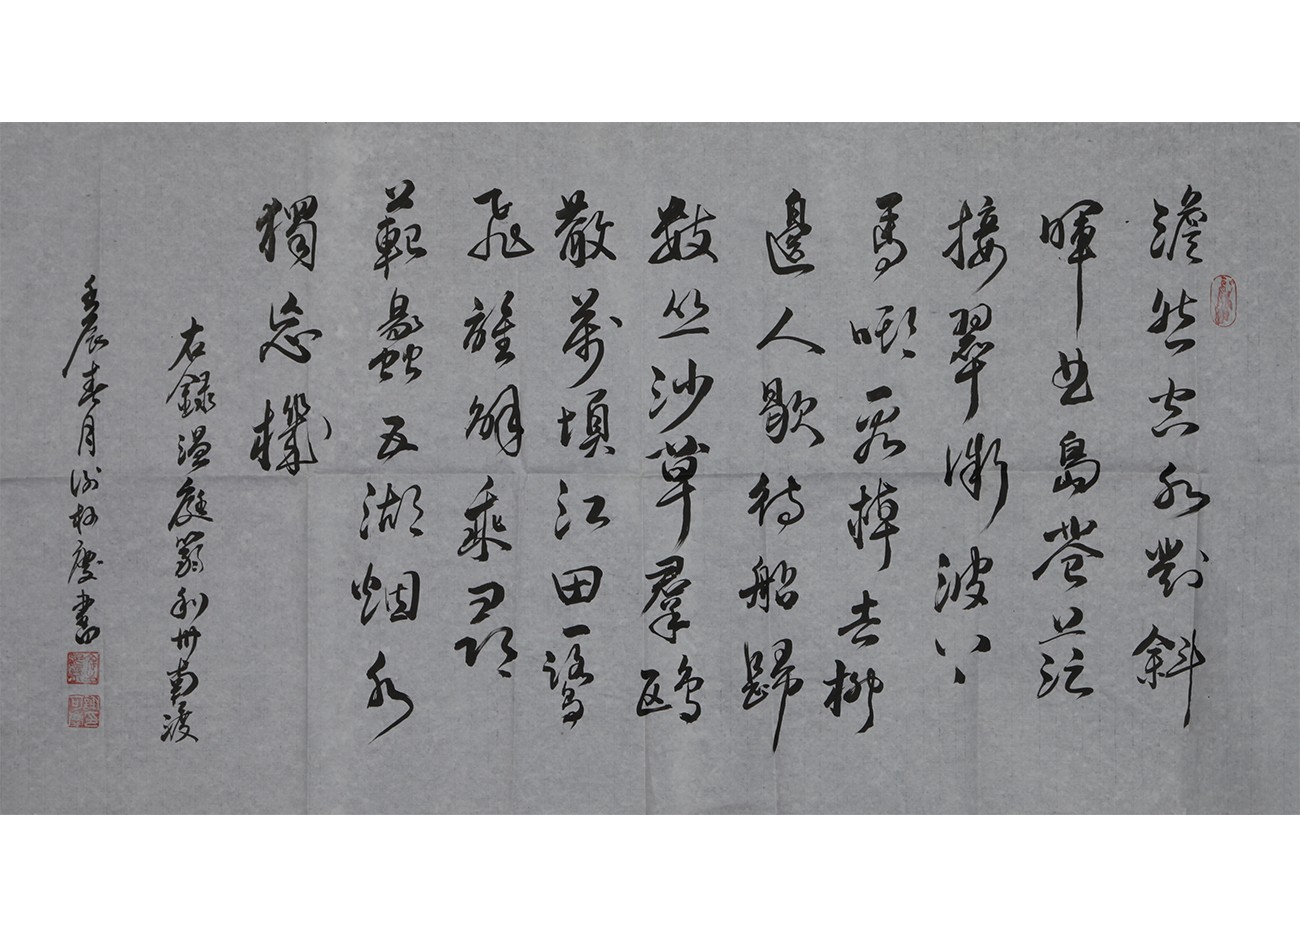 澹然空水對斜
暉曲島蒼茫
接翠微波上
馬嘶看棹去柳
邊人歇待船歸
數丛沙草羣鷗
散萬頃江田一鷺
飛誰解乘舟尋
範蠡五湖烟水
獨忘機
右録溫庭筠利州南渡
壬辰春月書